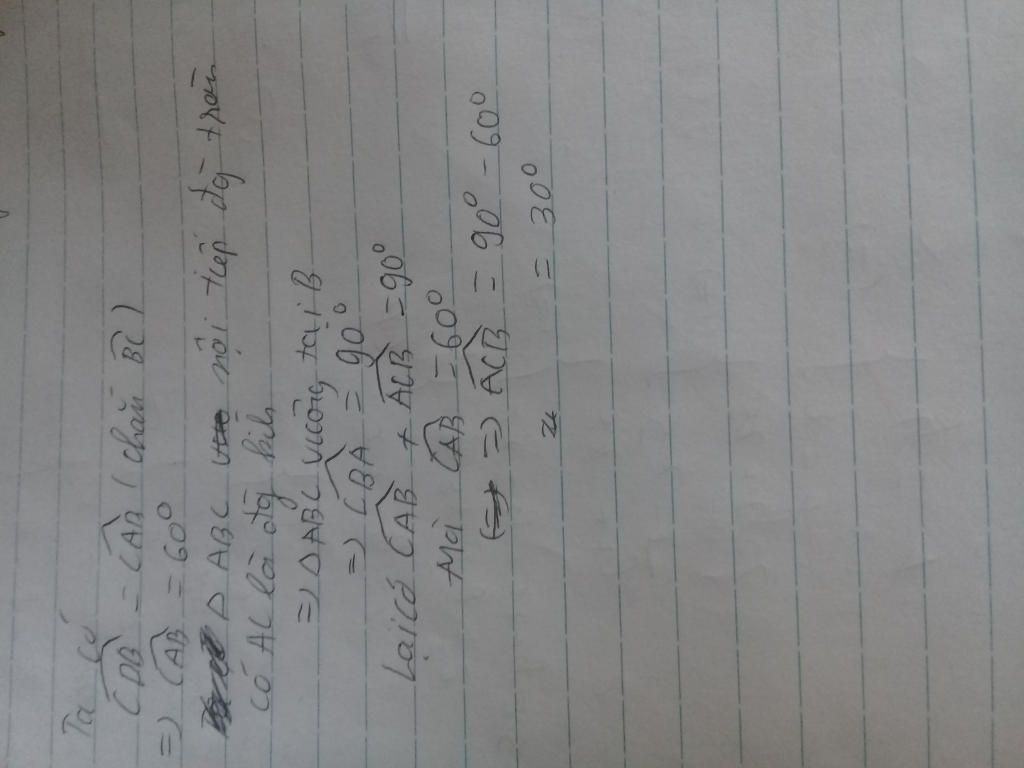 Ta có
CDB = CAB (chắn BC)
=> CAB = 60°
Δ ABC nội tiếp đg tròn
có AC là đg kíh
=> ΔABC vuông tại B
=> CBA = 90°
Lại có CAB + ACB = 90°
Mà CAB = 60°
=> ACB = 90° - 60°
= 30°